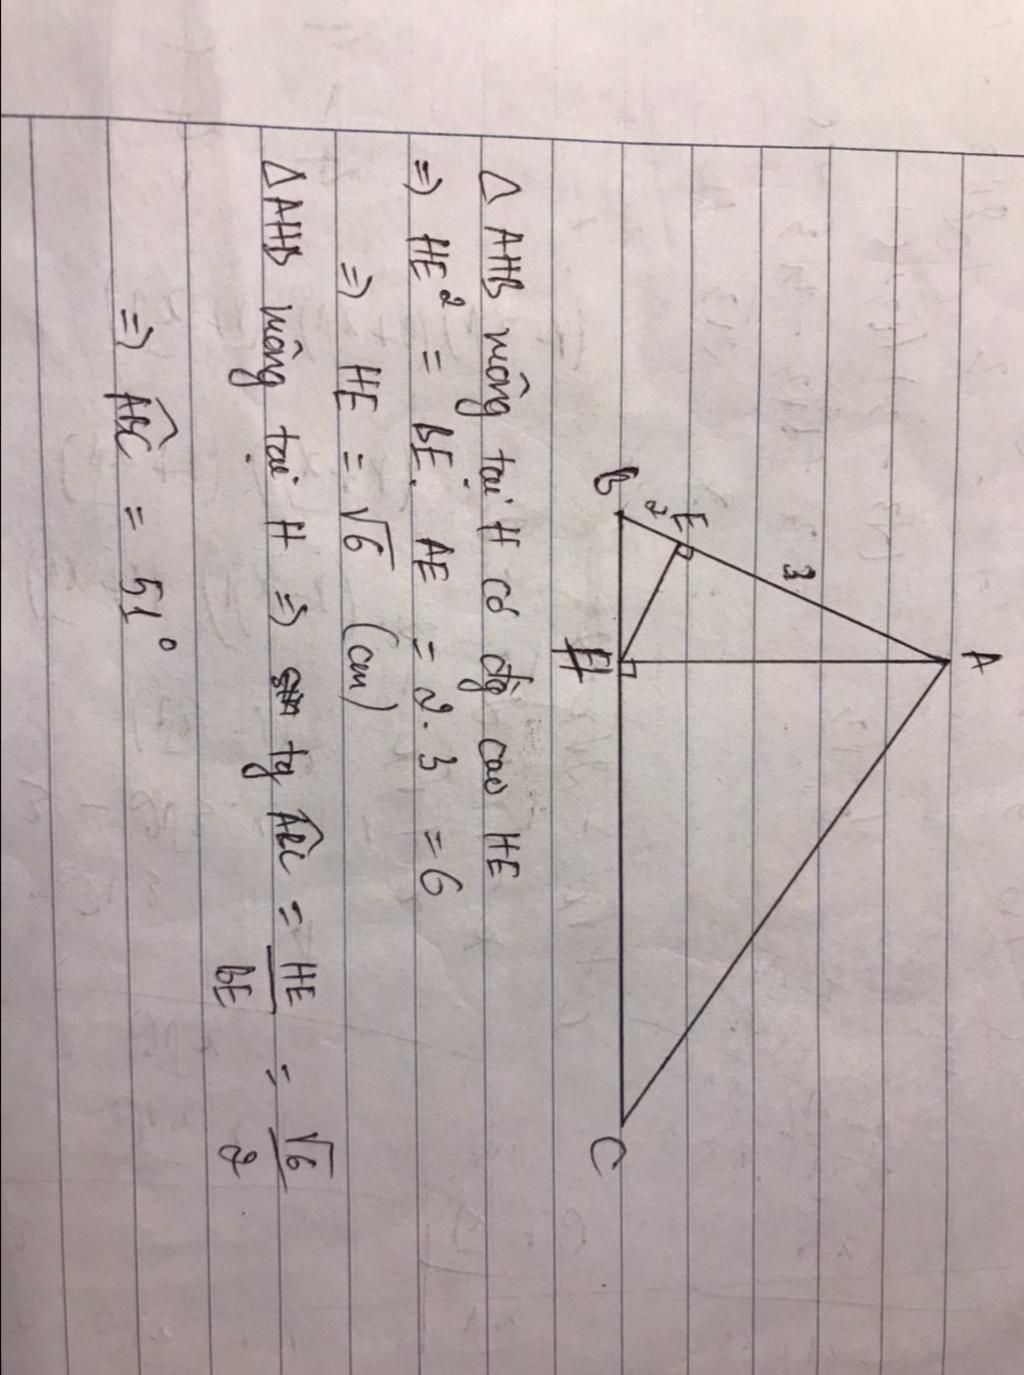 A
3
E
2
B
H
C
Δ AHB vuông tại H có đg cao HE
=> HE² = BE. AE = 2.3 = 6
=> HE = √6 (cm)
Δ AHB vuông tại H => tg ABC = HE/BE = √6/2
=> ABC = 51°